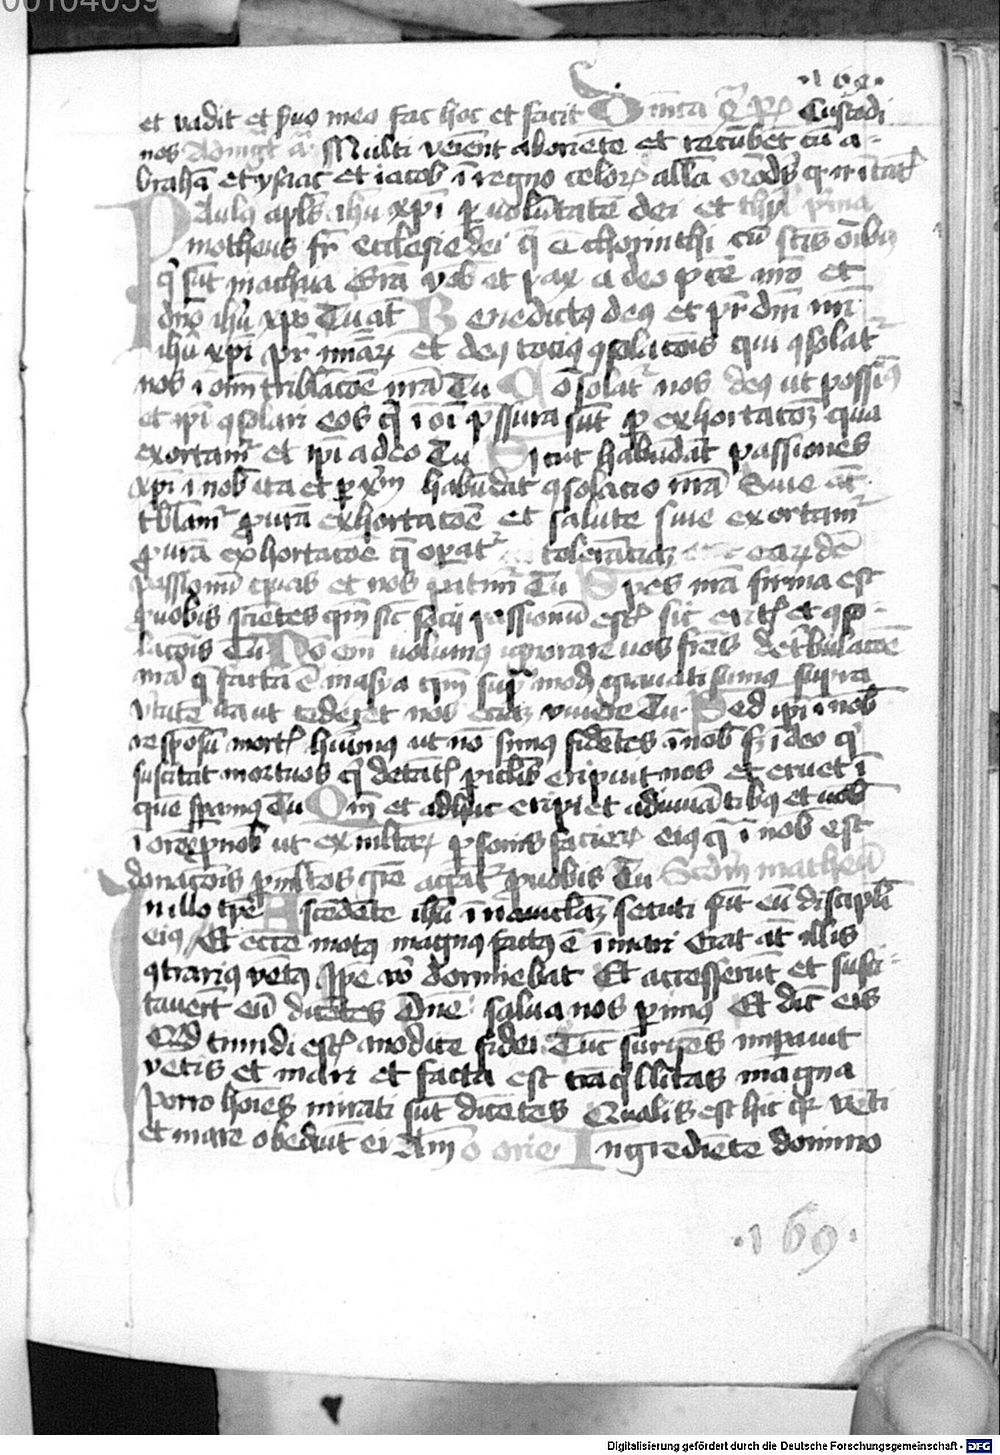 00104059
·169·
et vadit et suo meo fac hoc et facit Custodi
nos Multi veient aboriente et recubet cu a-
braha et ysaac et iacob i regno celor alla
Paulq apls ihu xpi p volutate dei et thy p'ma
motheus fr ecclesie dei q e chorinthi cu scis oibq
q sut i achaia Gra vob et pax a deo pre nro et
dno ihu xpo Tu at Benedictq deq et pr dni nri
ihu xpi pr miar et deq totiq qsolacois qui qsolat
nos i omi tribulacoe nra Tu Cosolat nos deq ut possimq
et ipi qsolari eos q i oi pssura sut p exhortacoz qua
exortam et ipi a deo Tu Sicut habudat passiones
xpi i nob ita et p xpm habudat qsolacio nra Siue at
tblam p vra exhortacoe et salute siue exortam
p vra exhortacoe q operat tolerancia earude
passionu quas et nos patim Tu Spes nra firma est
p vobis scietes qm sic socij passionu est sic erit et qso-
lacois Tu No em volumq ignorare vos fres de tribulacoe
nra q facta e i asya qm sup modu grauati sumq supra
vtute ita ut tederet nos etia viuere Tu Sed ipi i nob
resposu mort huimq ut no simq fidetes i nob s i deo q
suscitat mortuos q de tatis piclis eripuit nos et eruet i
que spamq Tu Qm et adhuc eripiet adiuuatibq et vob
i oroe p nob ut ex multar psonis facier eiq q i nob est
donacois p multos gre agat p vobis Tu Scdm matheu
In illo tpe Ascedete ihu i nauicla secuti sut eu discipli
eiq Et ecce motq magnq factq e i mari Erat at illis
qtrariq vetq Ipe vo dormiebat Et accesserut et susci-
tauert eu dicetes Dne salua nos perimq Et dic eis
Qd timidi est modice fidei Tuc surges imperauit
vetis et mari et facta est traqllitas magna
Porro hoies mirati sut dicetes Qualis est hic qr veti
et mare obediut ei Am Ingrediete domino
·169·
Digitalisierung gefördert durch die Deutsche Forschungsgemeinschaft - DFG